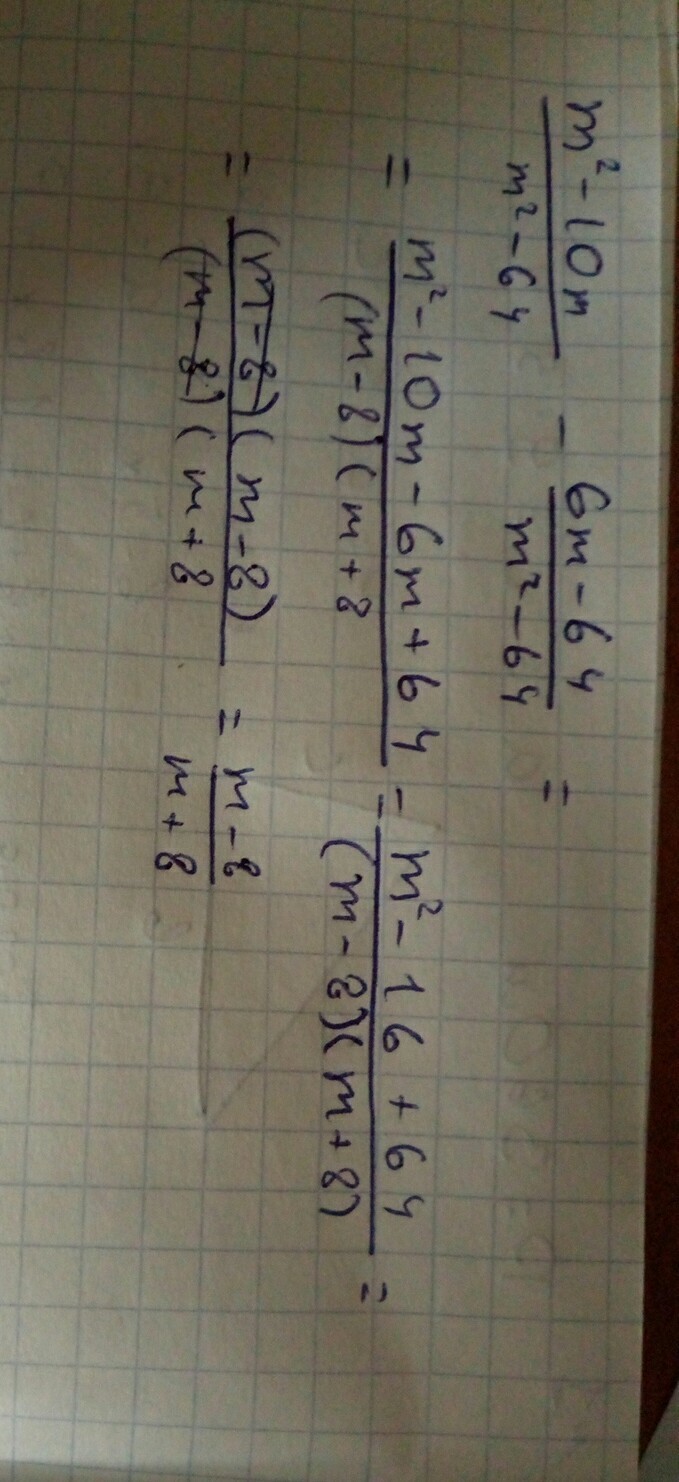 m² - 10m / m² - 64 - 6m - 64 / m² - 64 =
= m² - 10m - 6m + 64 / (m - 8)(m + 8 = m² - 16 + 64 / (m - 8)(m + 8) =
= (m - 8)(m - 8) / (m - 8)(m + 8 = m - 8 / m + 8